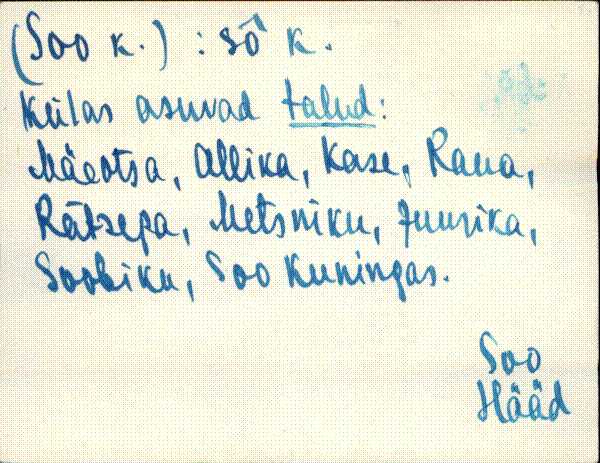 (Soo k.) : sô k.
Külas asuvad talud:
Mäeotsa, Allika, Kase, Raua,
Rätsepa, Metsniku, Juurika,
Soobiku, Soo Kuningas.
Soo
Hääd